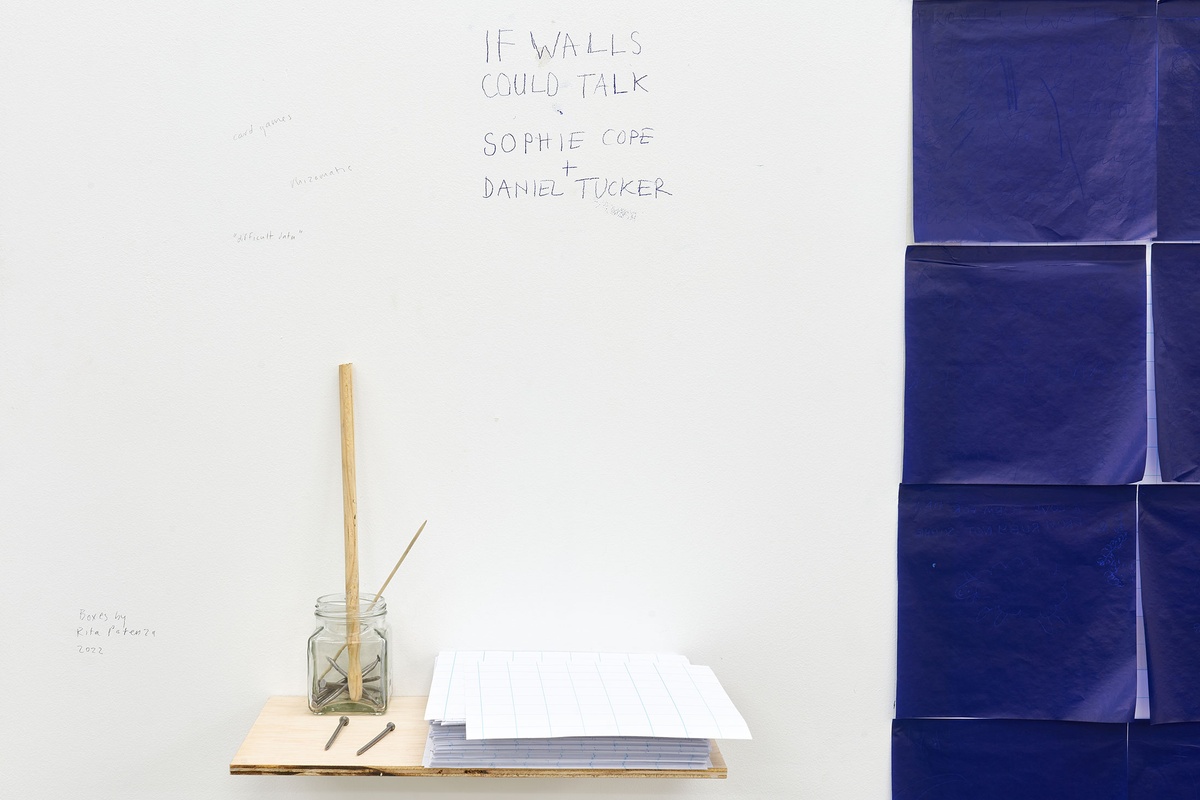 IF WALLS
COULD TALK
SOPHIE COPE
+
DANIEL TUCKER
card games
rhizomatic
"difficult data"
Boxes by
Rita Potenza
2022